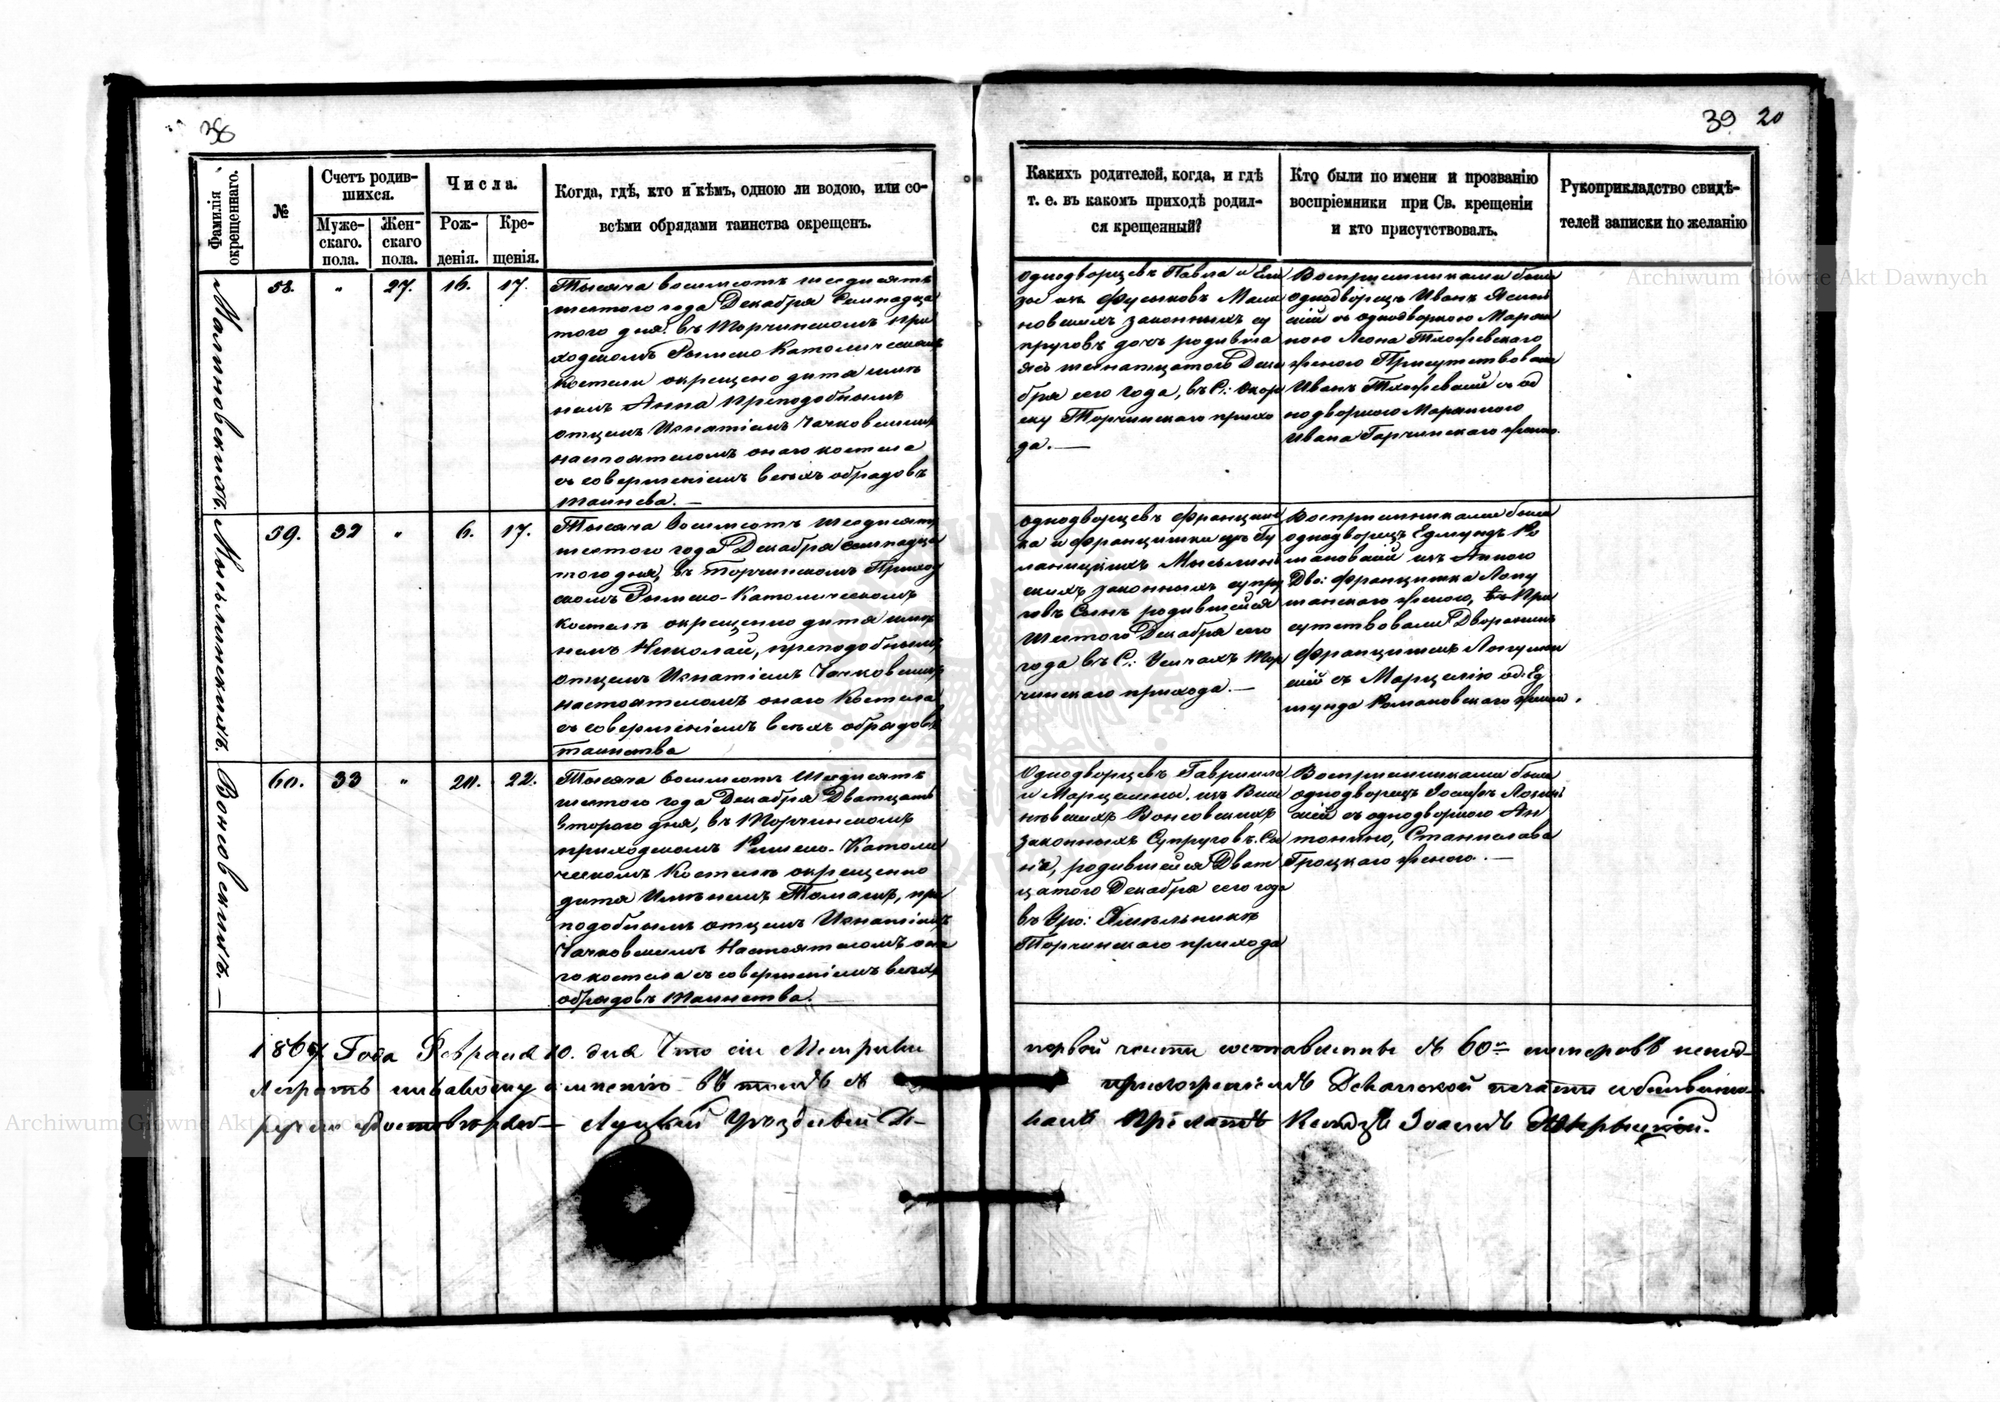 38
39 20
Фамилія окрещеннаго.
№
Счетъ родив-
шихся.
Муже-
скаго.
пола.
Жен-
скаго
пола.
Числа.
Рож-
денія.
Кре-
щенія.
Когда, гдѣ, кто и кѣмъ, одною ли водою, или со-
всѣми обрядами таинства окрещенъ.
Какихъ родителей, когда, и гдѣ
т. е. въ какомъ приходѣ родил-
ся крещенный?
Кто были по имени и прозванію
воспріемники при Св. крещеніи
и кто присутствовалъ.
Рукоприкладство свидѣ-
телей записки по желанію
Малиновскихъ
58. " 27. 16. 17.
Тысяча восемсотъ шесдисятъ
шестого года Декабря Семнадца
того дня, въ Торчинскомъ при
ходскомъ Римско Католическомъ
костели окрещено дитя име
немъ Анна преподобнымъ
отцемъ Игнатіемъ Чачковскимъ
настоятелемъ онаго костела
съ совершеніемъ всѣхъ обрядовъ
таинсва. —
Однодворцевъ Павла и Ели
зы изъ Мали
новскихъ законныхъ су
пруговъ дочъ родивша
яся шеснатцатого Дека
бря сего года, въ С:
Торчинскаго прихо
да. —
Воспріемниками были
однодворецъ Иванъ Ясин
скій съ однодворкою Маріан
ною Леона
женою Присутствовали
Иванъ съ од
нодворкою Маріанною
Ивана Горчинскаго женою.
Мысьлинскихъ.
59. 32 " 6. 17.
Тысяча восемсотъ шесдисятъ
шестого года Декабря семнадца
того дня, въ Торчинскомъ Приход
скомъ Римско-Католическомъ
костелѣ окрещенно дитя име
немъ Николай, преподобнымъ
отцемъ Игнатіемъ Чачковскимъ
настоятелемъ онаго Костела
съ совершеніемъ всѣхъ обрядовъ
таинства
Однодворцевъ Францишка
и Францишки изъ Гу
Мысьлин
скихъ законныхъ супру
говъ Сынъ родившейся
Шестого Декабря сего
года въ С: Усичахъ Тор
чинскаго прихода. —
Воспріемниками были
однодворецъ Едмундъ Ро
мановскій изъ Анною
Дво: Францишка Лопу
шанского женою, При
сутствовали Дворянинъ
Францишекъ
скій съ Марцелію од: Ед
мунда Романовскаго женою.
Вонсовскихъ. —
60. 33 " 20. 22.
Тысяча восемсотъ Шесдисятъ
шестого года Декабря Дватцать
второго дня, въ Торчинскомъ
приходскомъ Римско-Католи
ческомъ Костелѣ окрещенно
дитя Именемъ Томашъ, пре
подобнымъ отцемъ Игнатіемъ
Чачковскимъ Настоятелемъ она
го костела съ совершеніемъ всѣхъ
обрядовъ таинства. —
Однодворцевъ Гавриила
и Марцелины, изъ
Вонсовскихъ
законныхъ Супруговъ Сы
нъ, родившейся Дват
цатого Декабря сего года
въ Уро: Хмѣльникѣ
Торчинскаго прихода
Воспріемниками были
однодворецъ Іосифъ
скій съ однодворкою Ан
тониною, Станислава
Гроцкаго женою. —
1867 Года Февраля 10. дня Что сіи Метрики первой части составленны въ 60 нумеровъ
въ томъ съ приложеніемъ Деканской печати
Луцкій Уѣздный Де-
канъ Прелатъ Ксендзъ Іоаннъ
Archiwum Główne Akt Dawnych
Archiwum Główne Akt Dawnych